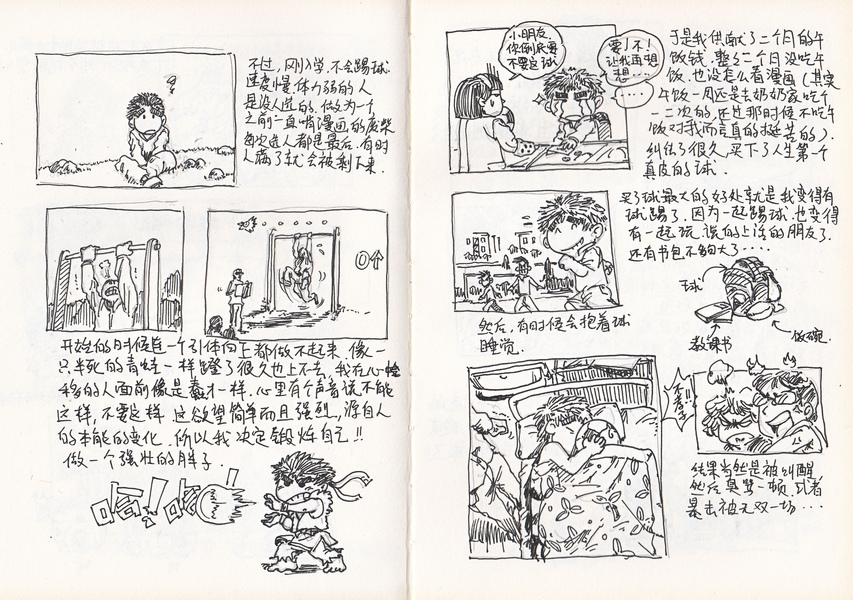 不过，刚入学，不会踢球
速度慢，体力弱的人
是没人选的，做为一个
之前一直啃漫画的废柴
每次选人都是最后，有时
人满了就会被剩下来.
0个
开始的时候连一个引体向上都做不起来.像一
只半死的青蛙一样蹬了很久也上不去，我在心
的人面前像是蠢才一样.心里有个声音说不能
这样，不要这样 这欲望简单而且强烈，源自人
的本能的变化，所以我决定锻炼自己!!
做一个强壮的胖子.
小朋友.
你倒底要
不要这球
要!不!
让我再想
想....
于是我供献了二个月的午
饭钱.整个二个月没吃午
饭，也没怎么看漫画(其实
午饭一周还是去奶奶家吃个
一二次的，还过那时候不吃午
饭对我而言真的挺苦的).
纠结了很久，买下了人生第一个
真皮的球.
买了球最大的好处就是我变得有
球踢了，因为一起踢球，也变得
有一起玩，说的上话的朋友了.
还有书包不够大了....
球
教课书
饭碗.
然后，有时候会抱着球
睡觉.
结果当然是被叫醒
然后臭骂一顿，或者
是去被无双一场...